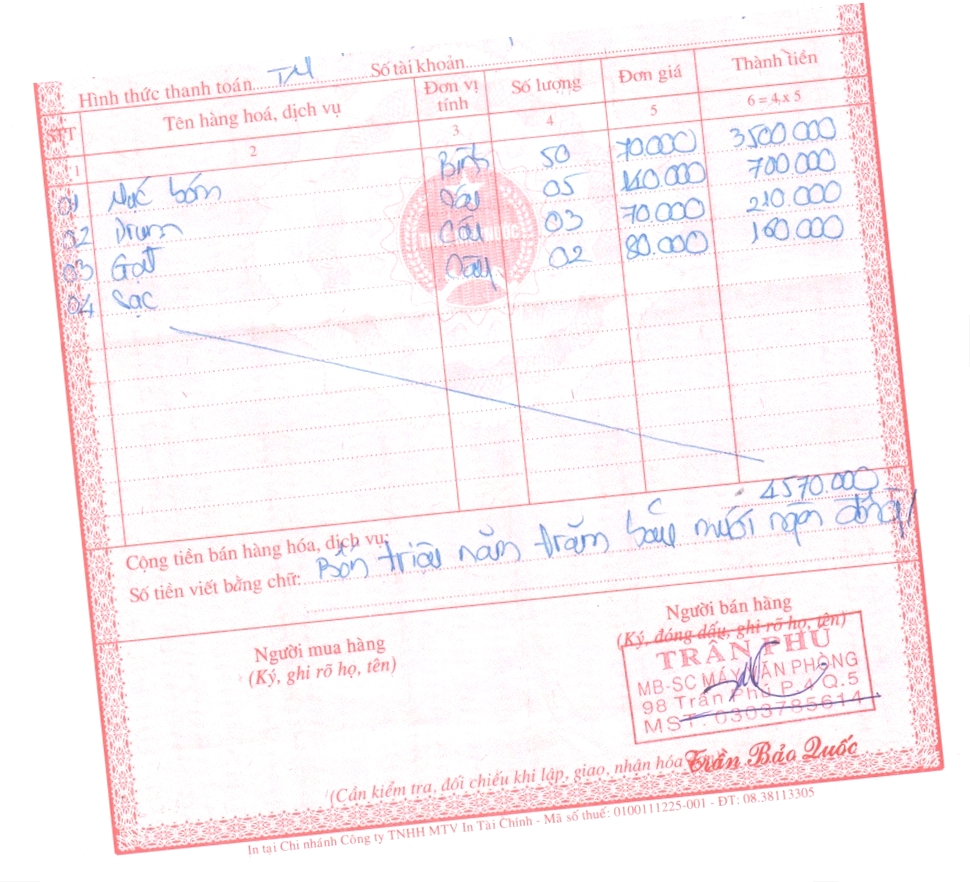 Hình thức thanh toán TM Số tài khoản
STT Tên hàng hoá, dịch vụ Đơn vị tính Số lượng Đơn giá Thành tiền
1 2 3 4 5 6 = 4 x 5
01 Mực bơm Bình 50 70.000 3500.000
02 Drum 05 140.000 700.000
03 Gạt Cái 03 70.000 210.000
04 Sạc Cây 02 80.000 160.000
Cộng tiền bán hàng hóa, dịch vụ: 4570.000
Số tiền viết bằng chữ: Bốn triệu năm trăm bảy mươi ngàn đồng
Người mua hàng
(Ký, ghi rõ họ, tên)
Người bán hàng
(Ký, đóng dấu, ghi rõ họ, tên)
TRẦN PHÚ
MB-SC MÁY VĂN PHÒNG
98 Trần Phú P.4 Q.5
MST: 0303785614
Trần Bảo Quốc
(Cần kiểm tra, đối chiếu khi lập, giao, nhận hóa
In tại Chi nhánh Công ty TNHH MTV In Tài Chính - Mã số thuế: 0100111225-001 - ĐT: 08.38113305